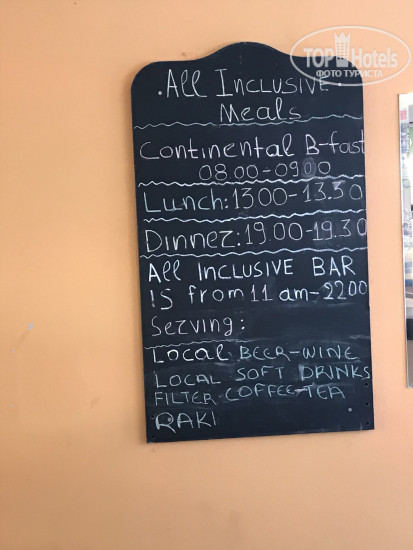 TOP Hotels
ФОТО ТУРИСТА
All Inclusive
Meals
Continental B-fast
08.00-09.00
Lunch: 13.00-13.30
Dinnez: 19.00-19.30
All INCLUSIVE BAR
IS from 11 am-2200
Serving:
Local BEER-WINE
LOCAL SOFT DRINKS
FILTER COFFEE-TEA
RAKI